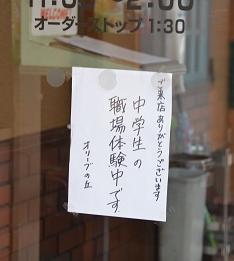 WELCOME
オーダーストップ1:30
ご来店ありがとうございます
中学生の
職場体験中です。
オリーブの丘